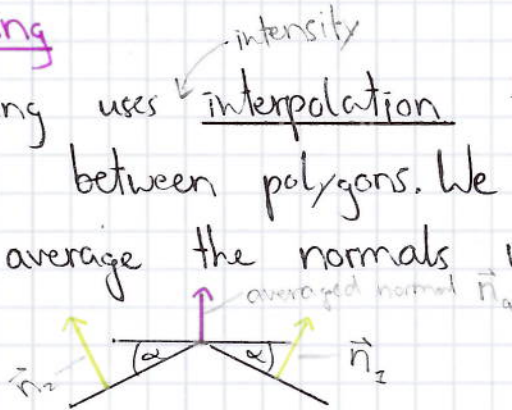 ng
intensity
ng uses interpolation
between polygons. We
average the normals
averaged normal n⃗a
α α
n⃗2 n⃗1